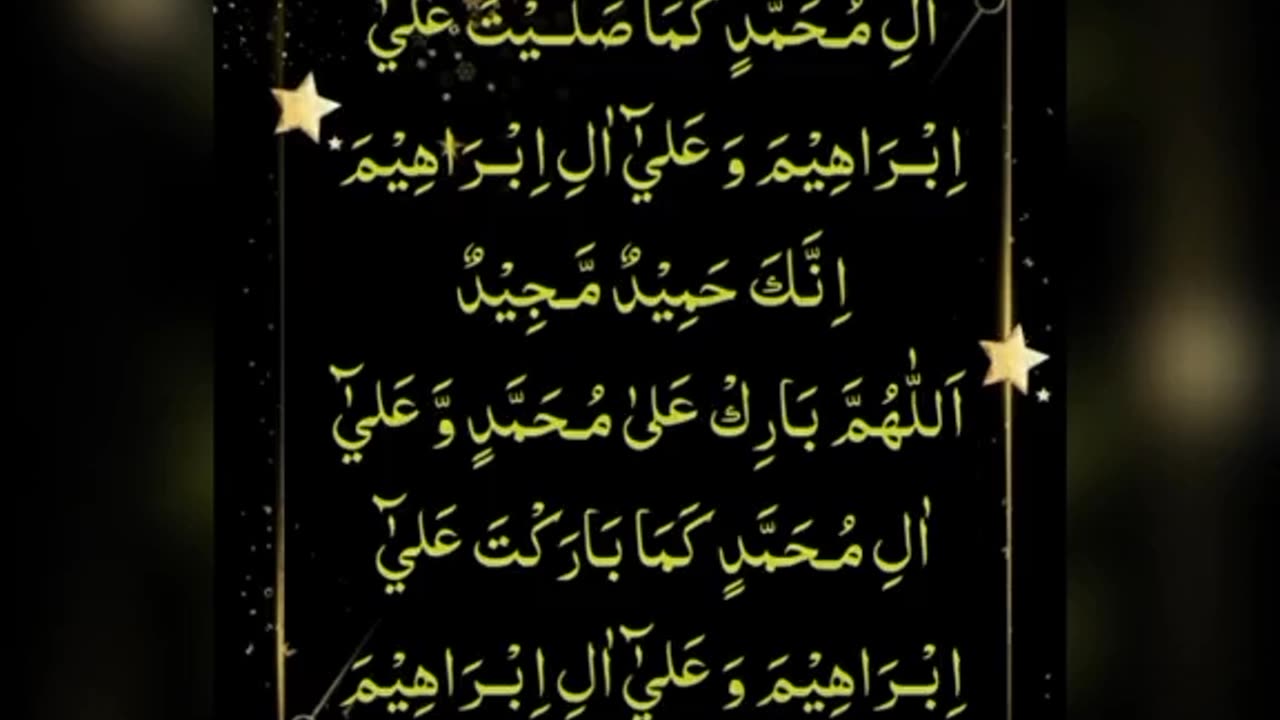 اٰلِ مُحَمَّدٍ كَمَا صَلَّيْتَ عَلٰي
اِبْرَاهِيْمَ وَ عَلٰيٓ اٰلِ اِبْرَاهِيْمَ
اِنَّكَ حَمِيْدٌ مَّجِيْدٌ
اَللّٰهُمَّ بَارِكْ عَلىٰ مُحَمَّدٍ وَّ عَلٰيٓ
اٰلِ مُحَمَّدٍ كَمَا بَارَكْتَ عَلٰيٓ
اِبْرَاهِيْمَ وَ عَلٰيٓ اٰلِ اِبْرَاهِيْمَ